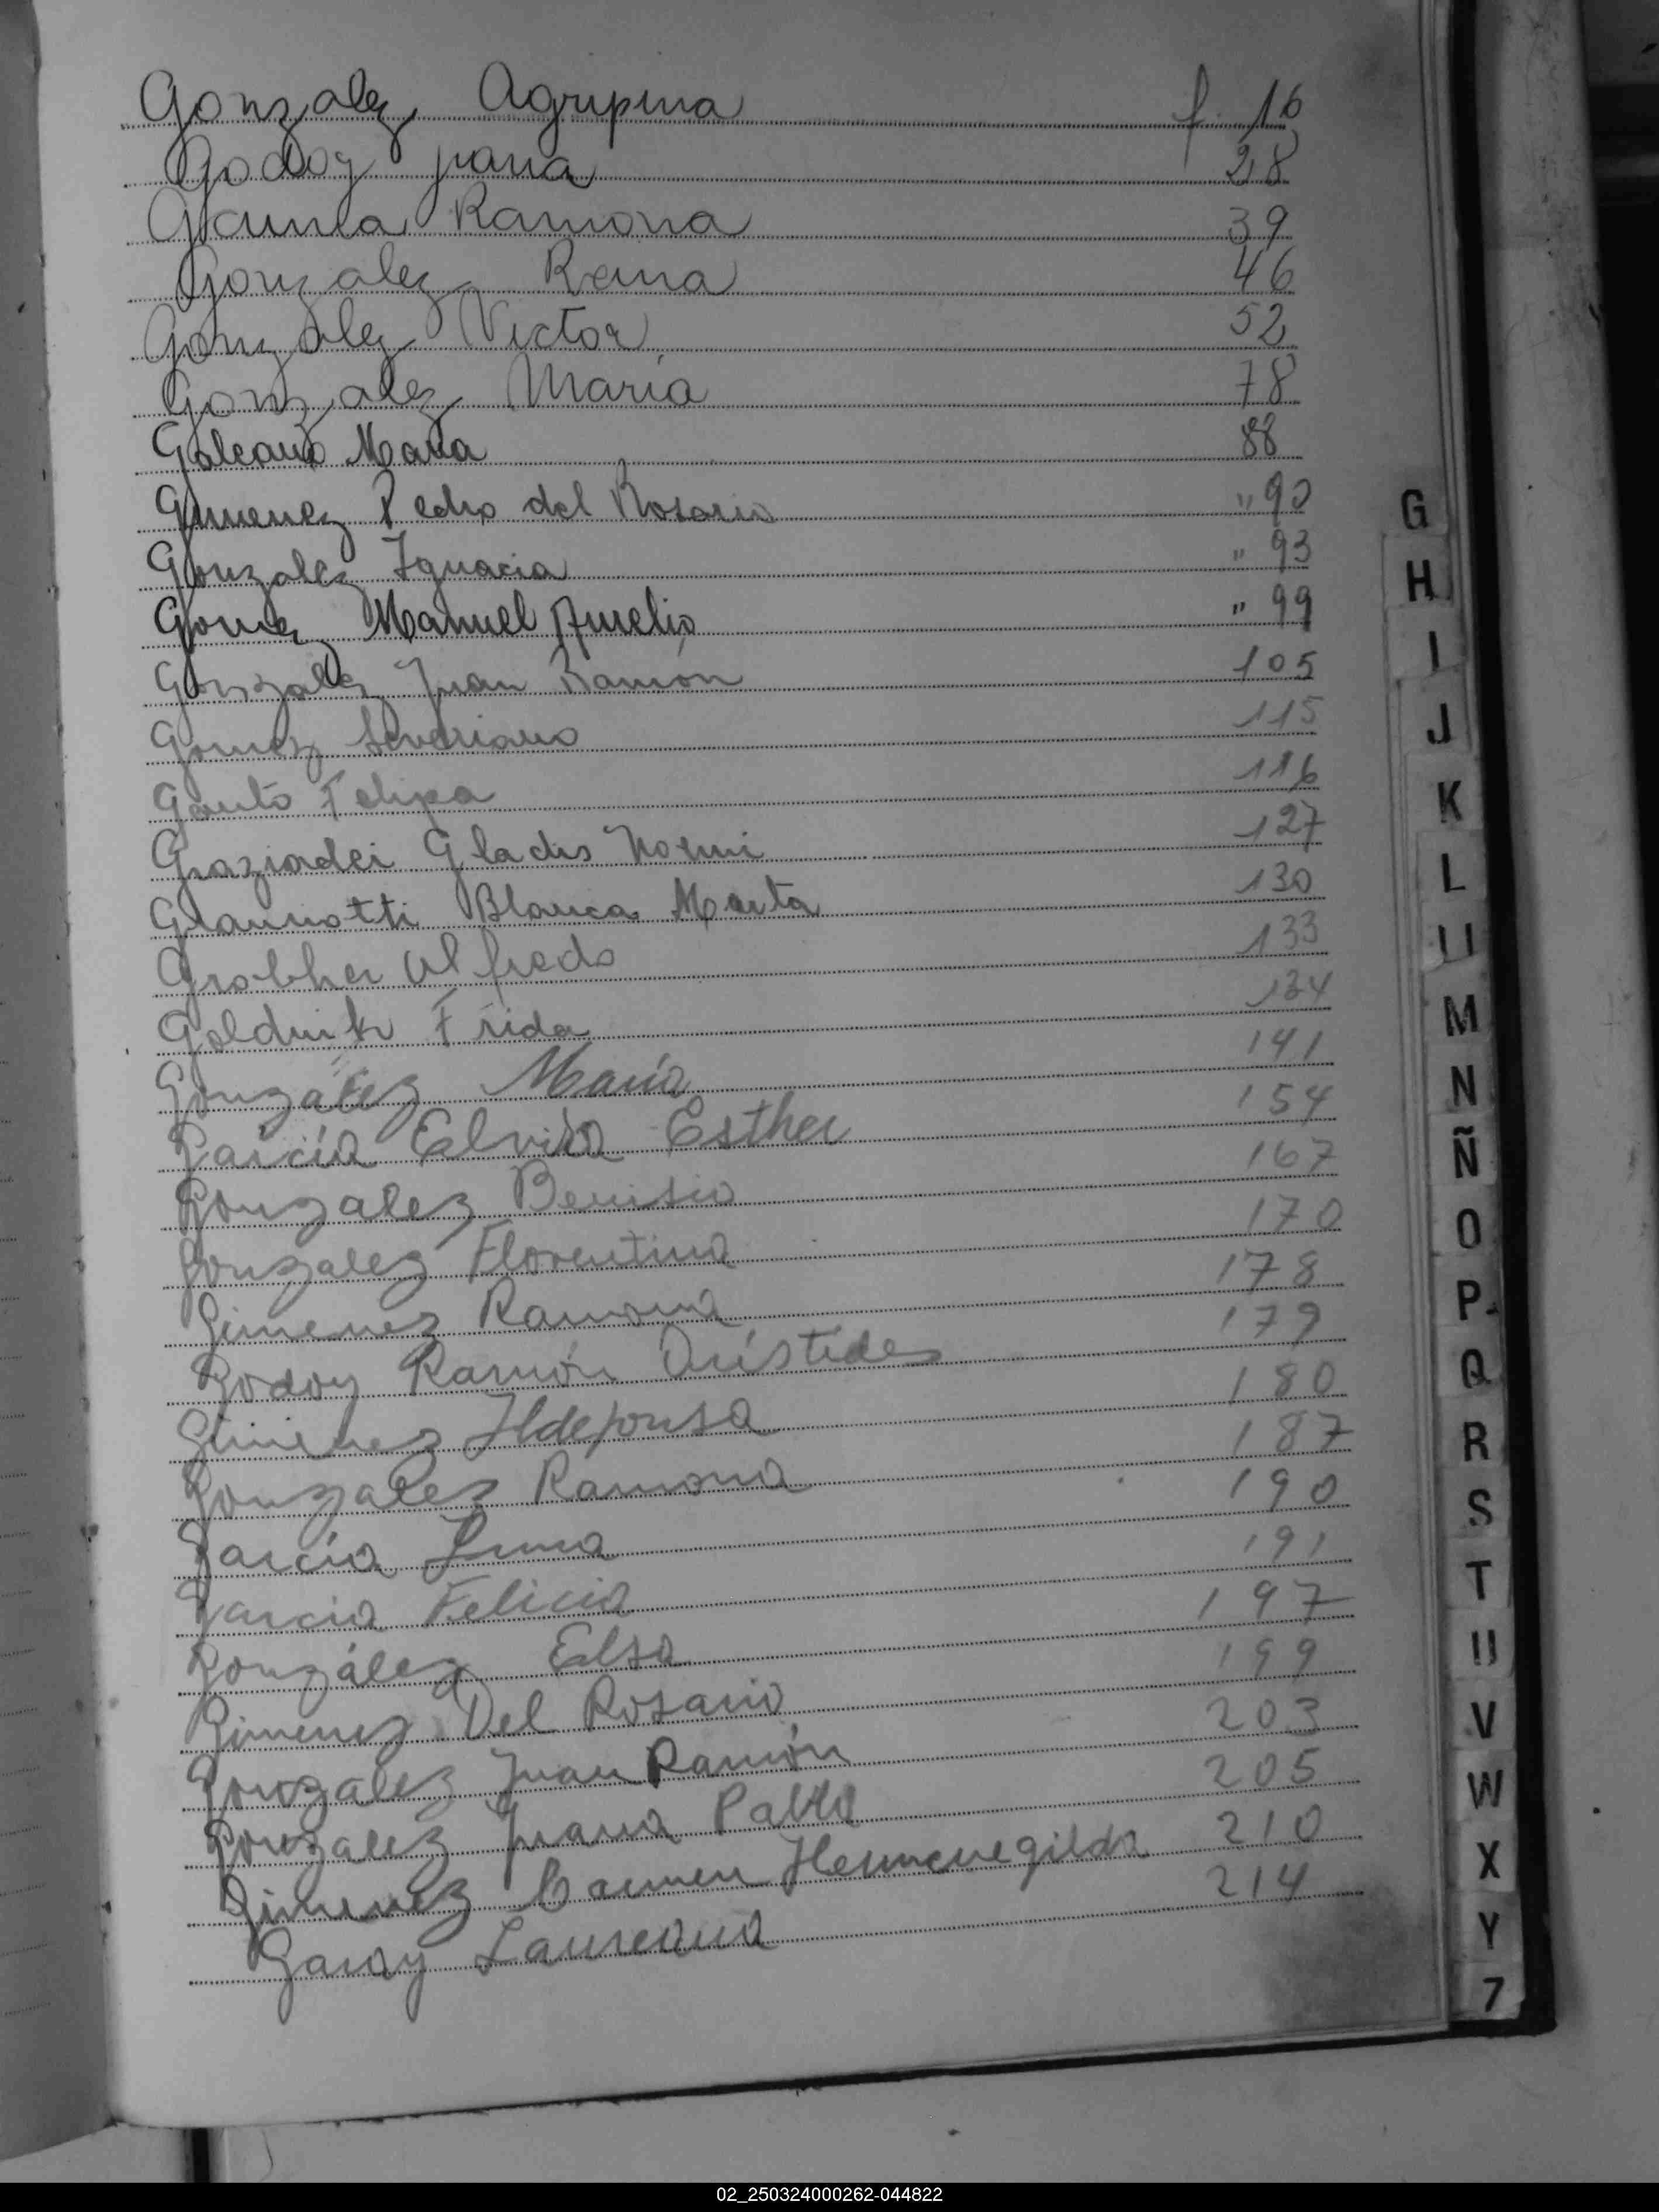 Gonzalez Agripina f. 16
Godoy Juana 28
Gauna Ramona 39
Gonzalez Rema 46
Gonzalez Victor 52
Gonzalez María 78
Galeano Maria 88
Gimenez Pedro del Rosario " 90
Gonzalez Ignacia " 93
Gomez Manuel Aurelio " 99
Gonzalez Juan Ramón 105
Gomez Severiano 115
Gauto Felipa 116
Graziadei Gladis Noemi 127
Giannotti Blanca Marta 130
Grobher Alfredo 133
Frida 134
González María 141
García Elvira Esther 154
Gonzalez Benisio 167
Gonzalez Florentina 170
Gimenez Ramona 178
Godoy Ramón Arístides 179
Gimenez Ildefonsa 180
Gonzalez Ramona 187
García 190
Garcia Felicia 191
González Elsa 197
Gimenez Del Rosario 199
Gonzalez Juan Ramón 203
Gonzalez Juana Pabla 205
Gimenez Carmen Hermenegilda 210
Garay Laureana 214
G
H
I
J
K
L
Ll
M
N
Ñ
O
P
Q
R
S
T
U
V
W
X
Y
Z
02_250324000262-044822